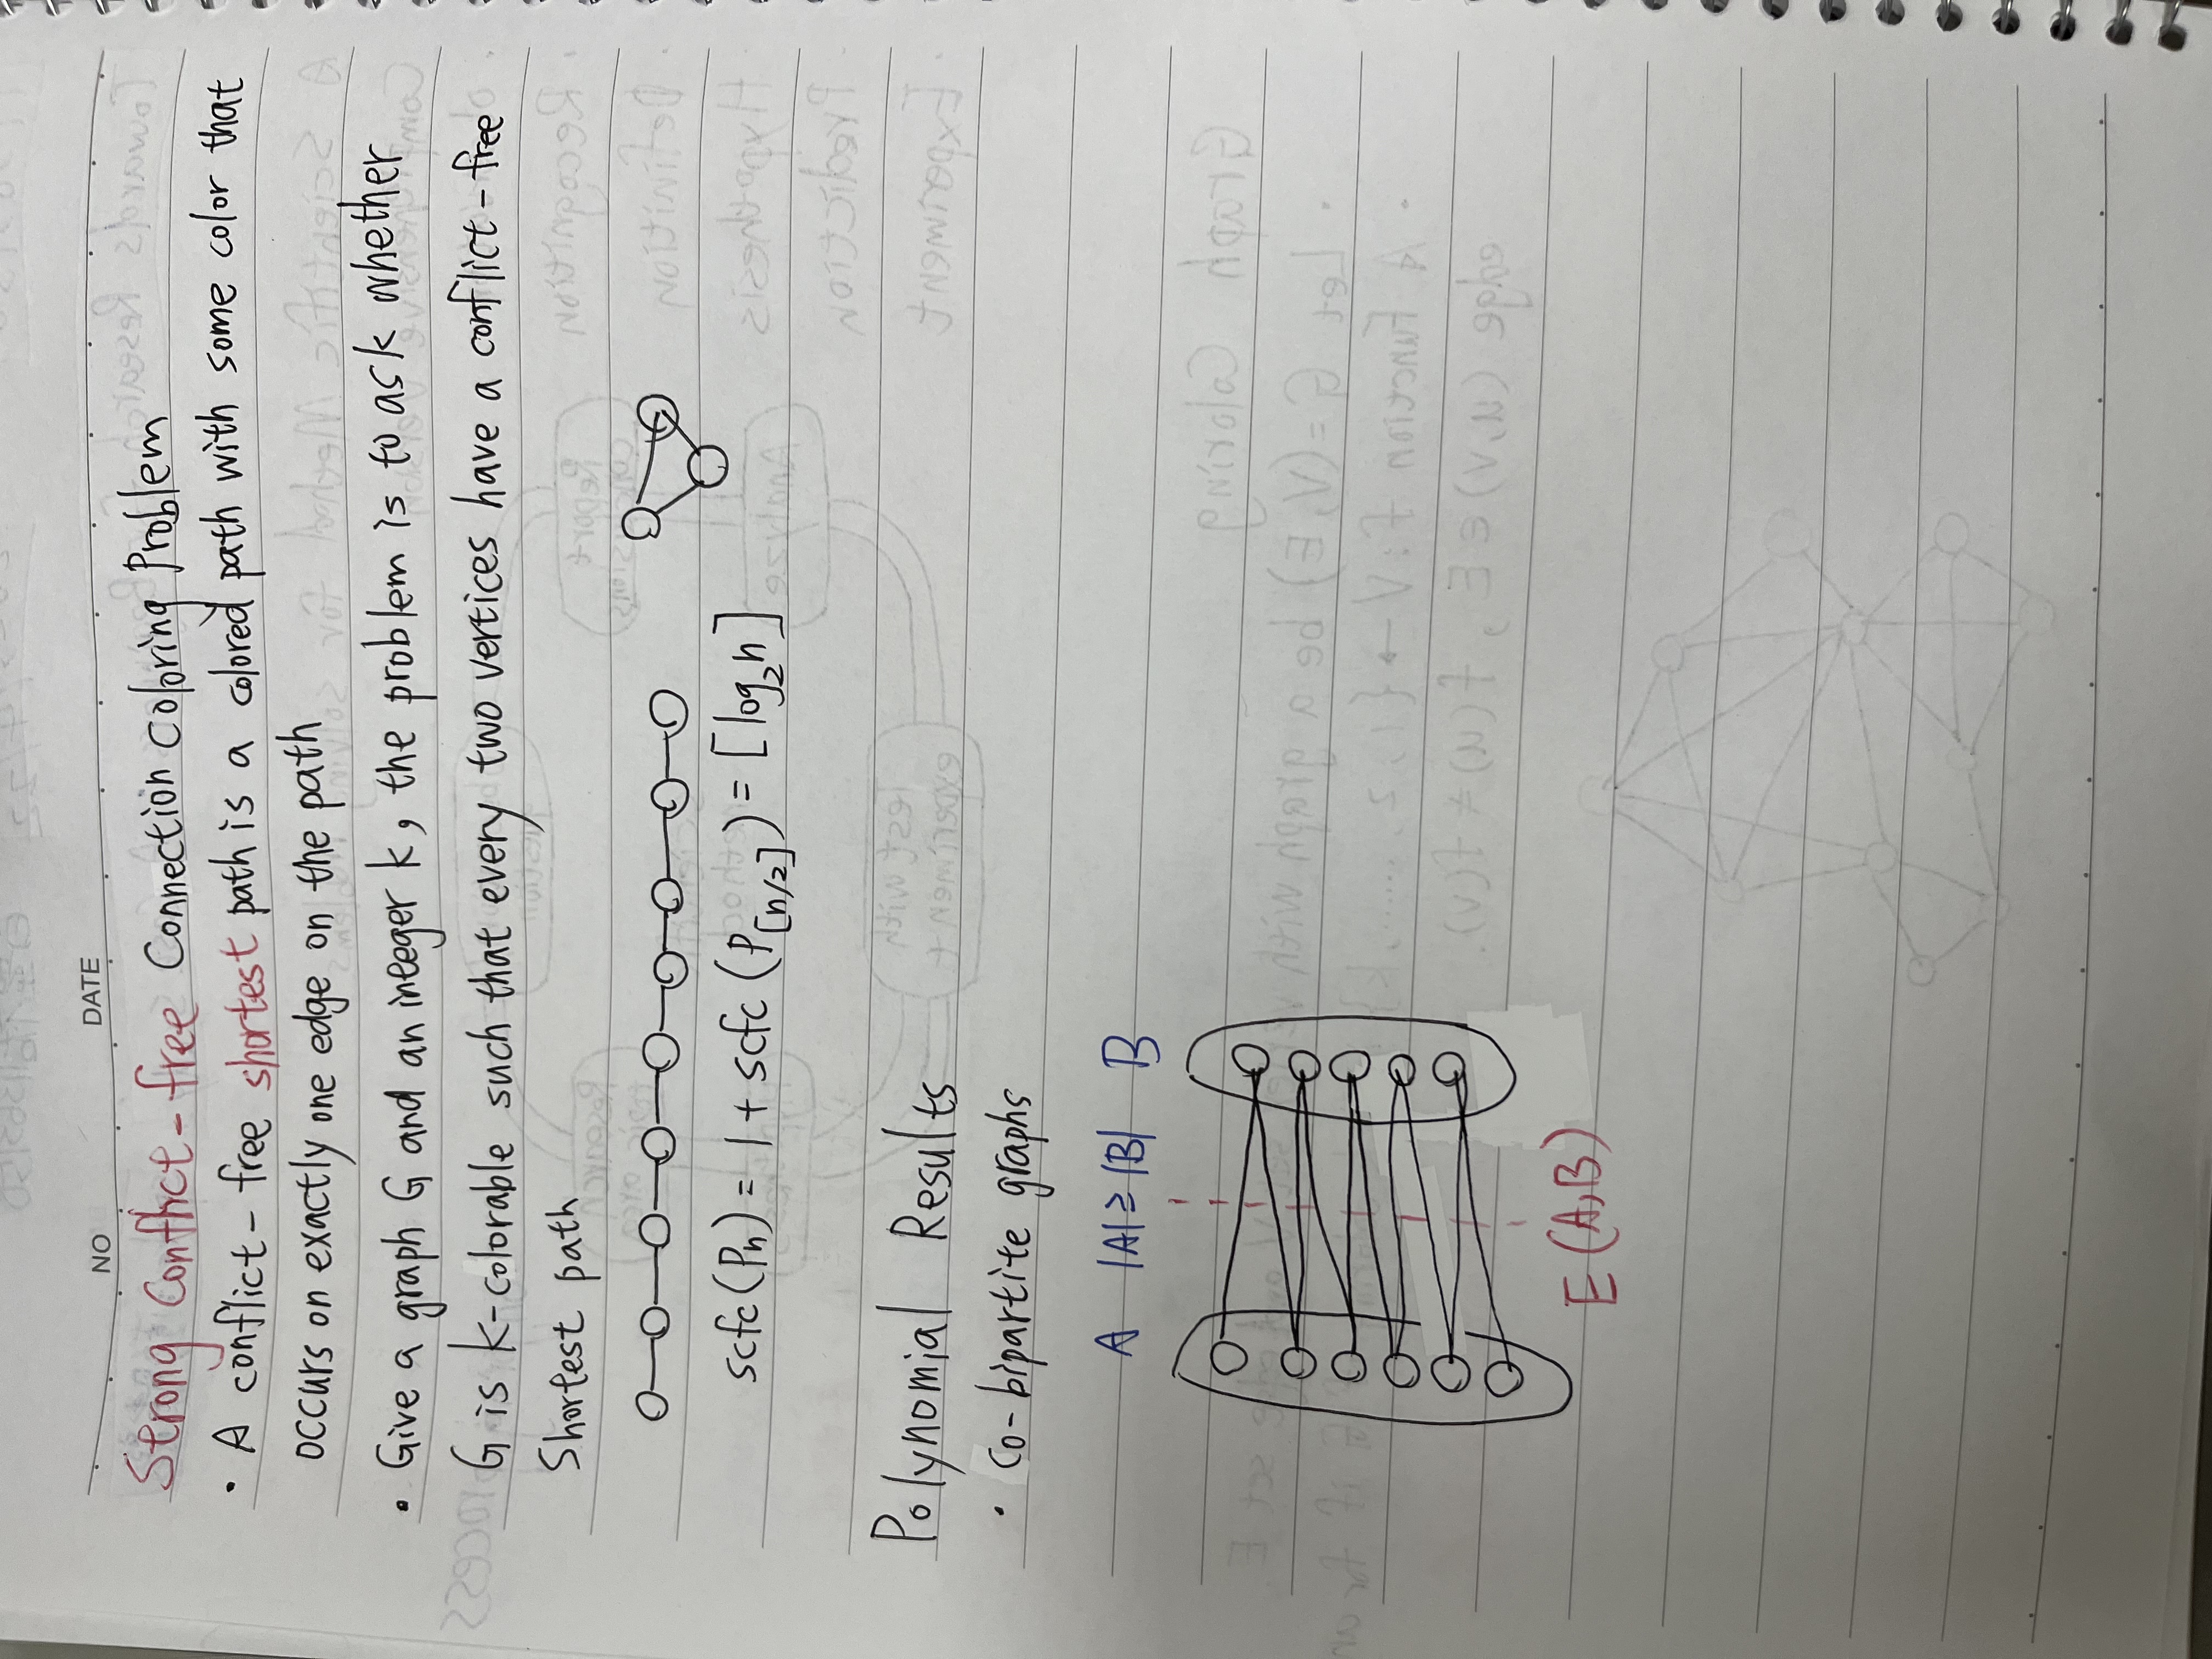 NO DATE
Strong Conflict-free Connection Coloring Problem
• A conflict-free shortest path is a colored path with some color that
occurs on exactly one edge on the path
• Give a graph G and an integer k, the problem is to ask whether
G is k-colorable such that every two vertices have a conflict-free
Shortest path
scfc(Pn) = 1 + scfc (P[n/2]) = [log₂n]
Polynomial Results
• Co-bipartite graphs
A |A| ≥ |B| B
E (A,B)